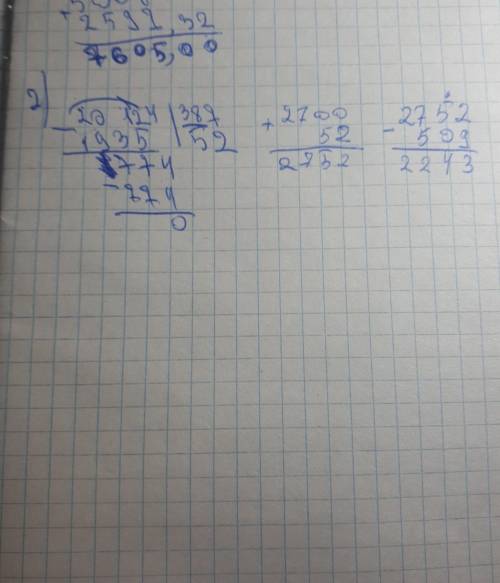 2599,32
7605,00
2) 20 124 | 387
- 1935 | 52
774
- 774
0
+ 2700
52
2752
- 2752
509
2243